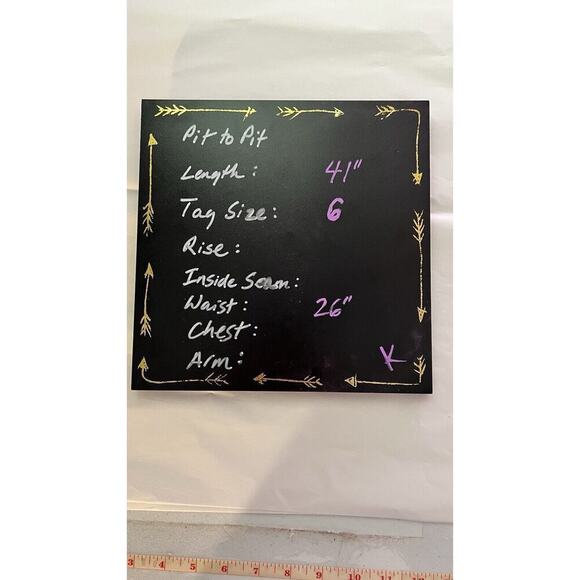 Pit to Pit
Length: 41"
Tag Size: 6
Rise:
Inside Seam:
Waist: 26"
Chest:
Arm:
K
3 4 5 6 7 8 9 10 11 12